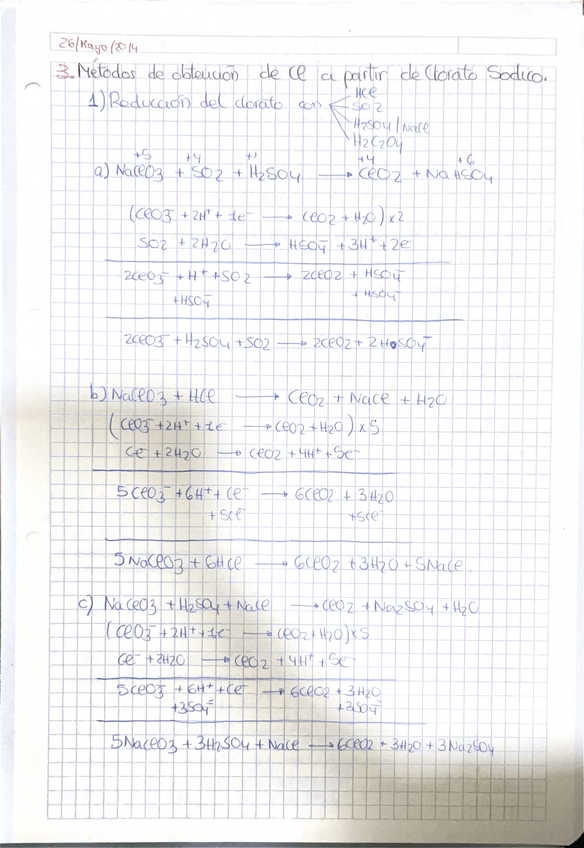 26/Mayo/2014
3. Métodos de obtención de Cl a partir de Clorato Sodico.
1) Reducción del clorato con
HCl
SO2
H2SO4/NaCl
H2C2O4
+5 +4 +1 +4 +6
a) NaClO3 + SO2 + H2SO4 → ClO2 + NaHSO4
(ClO3⁻ + 2H⁺ + 1e⁻ → ClO2 + H2O) x2
SO2 + 2H2O → HSO4⁻ + 3H⁺ + 2e⁻
2ClO3⁻ + H⁺ + SO2 → 2ClO2 + HSO4⁻
+HSO4⁻ + HSO4⁻
2ClO3⁻ + H2SO4 + SO2 → 2ClO2 + 2HSO4⁻
b) NaClO3 + HCl → ClO2 + NaCl + H2O
(ClO3⁻ + 2H⁺ + 1e⁻ → ClO2 + H2O) x5
Cl⁻ + 2H2O → ClO2 + 4H⁺ + 5e⁻
5ClO3⁻ + 6H⁺ + Cl⁻ → 6ClO2 + 3H2O
+5Cl⁻ +5Cl⁻
5NaClO3 + 6HCl → 6ClO2 + 3H2O + 5NaCl.
c) NaClO3 + H2SO4 + NaCl → ClO2 + Na2SO4 + H2O
(ClO3⁻ + 2H⁺ + 1e⁻ → ClO2 + H2O) x5
Cl⁻ + 2H2O → ClO2 + 4H⁺ + 5e⁻
5ClO3⁻ + 6H⁺ + Cl⁻ → 6ClO2 + 3H2O
+3SO4⁼ +3SO4⁼
5NaClO3 + 3H2SO4 + NaCl → 6ClO2 + 3H2O + 3Na2SO4